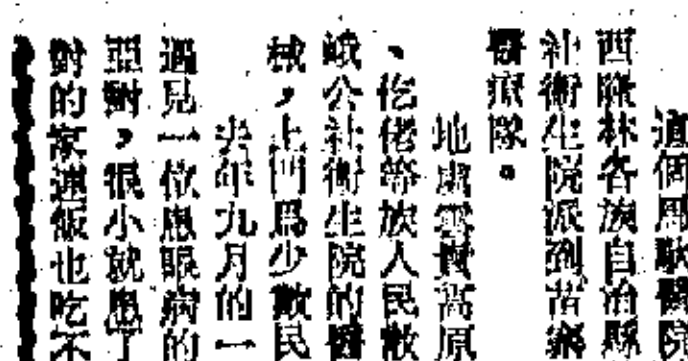 這個周歇醫院
西隆林各族自治縣
社衛生院派到苦寨
醫療隊。
地處雲貴高原
、仡佬等族人民散
峨公社衛生院的醫
械,上門爲少數民
去年九月的一
遇見一位患眼病的
亞對,很小就患了
對的家連飯也吃不